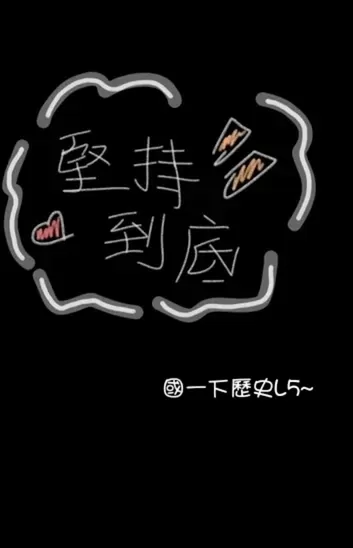 堅持
到底
國一下歷史L5~